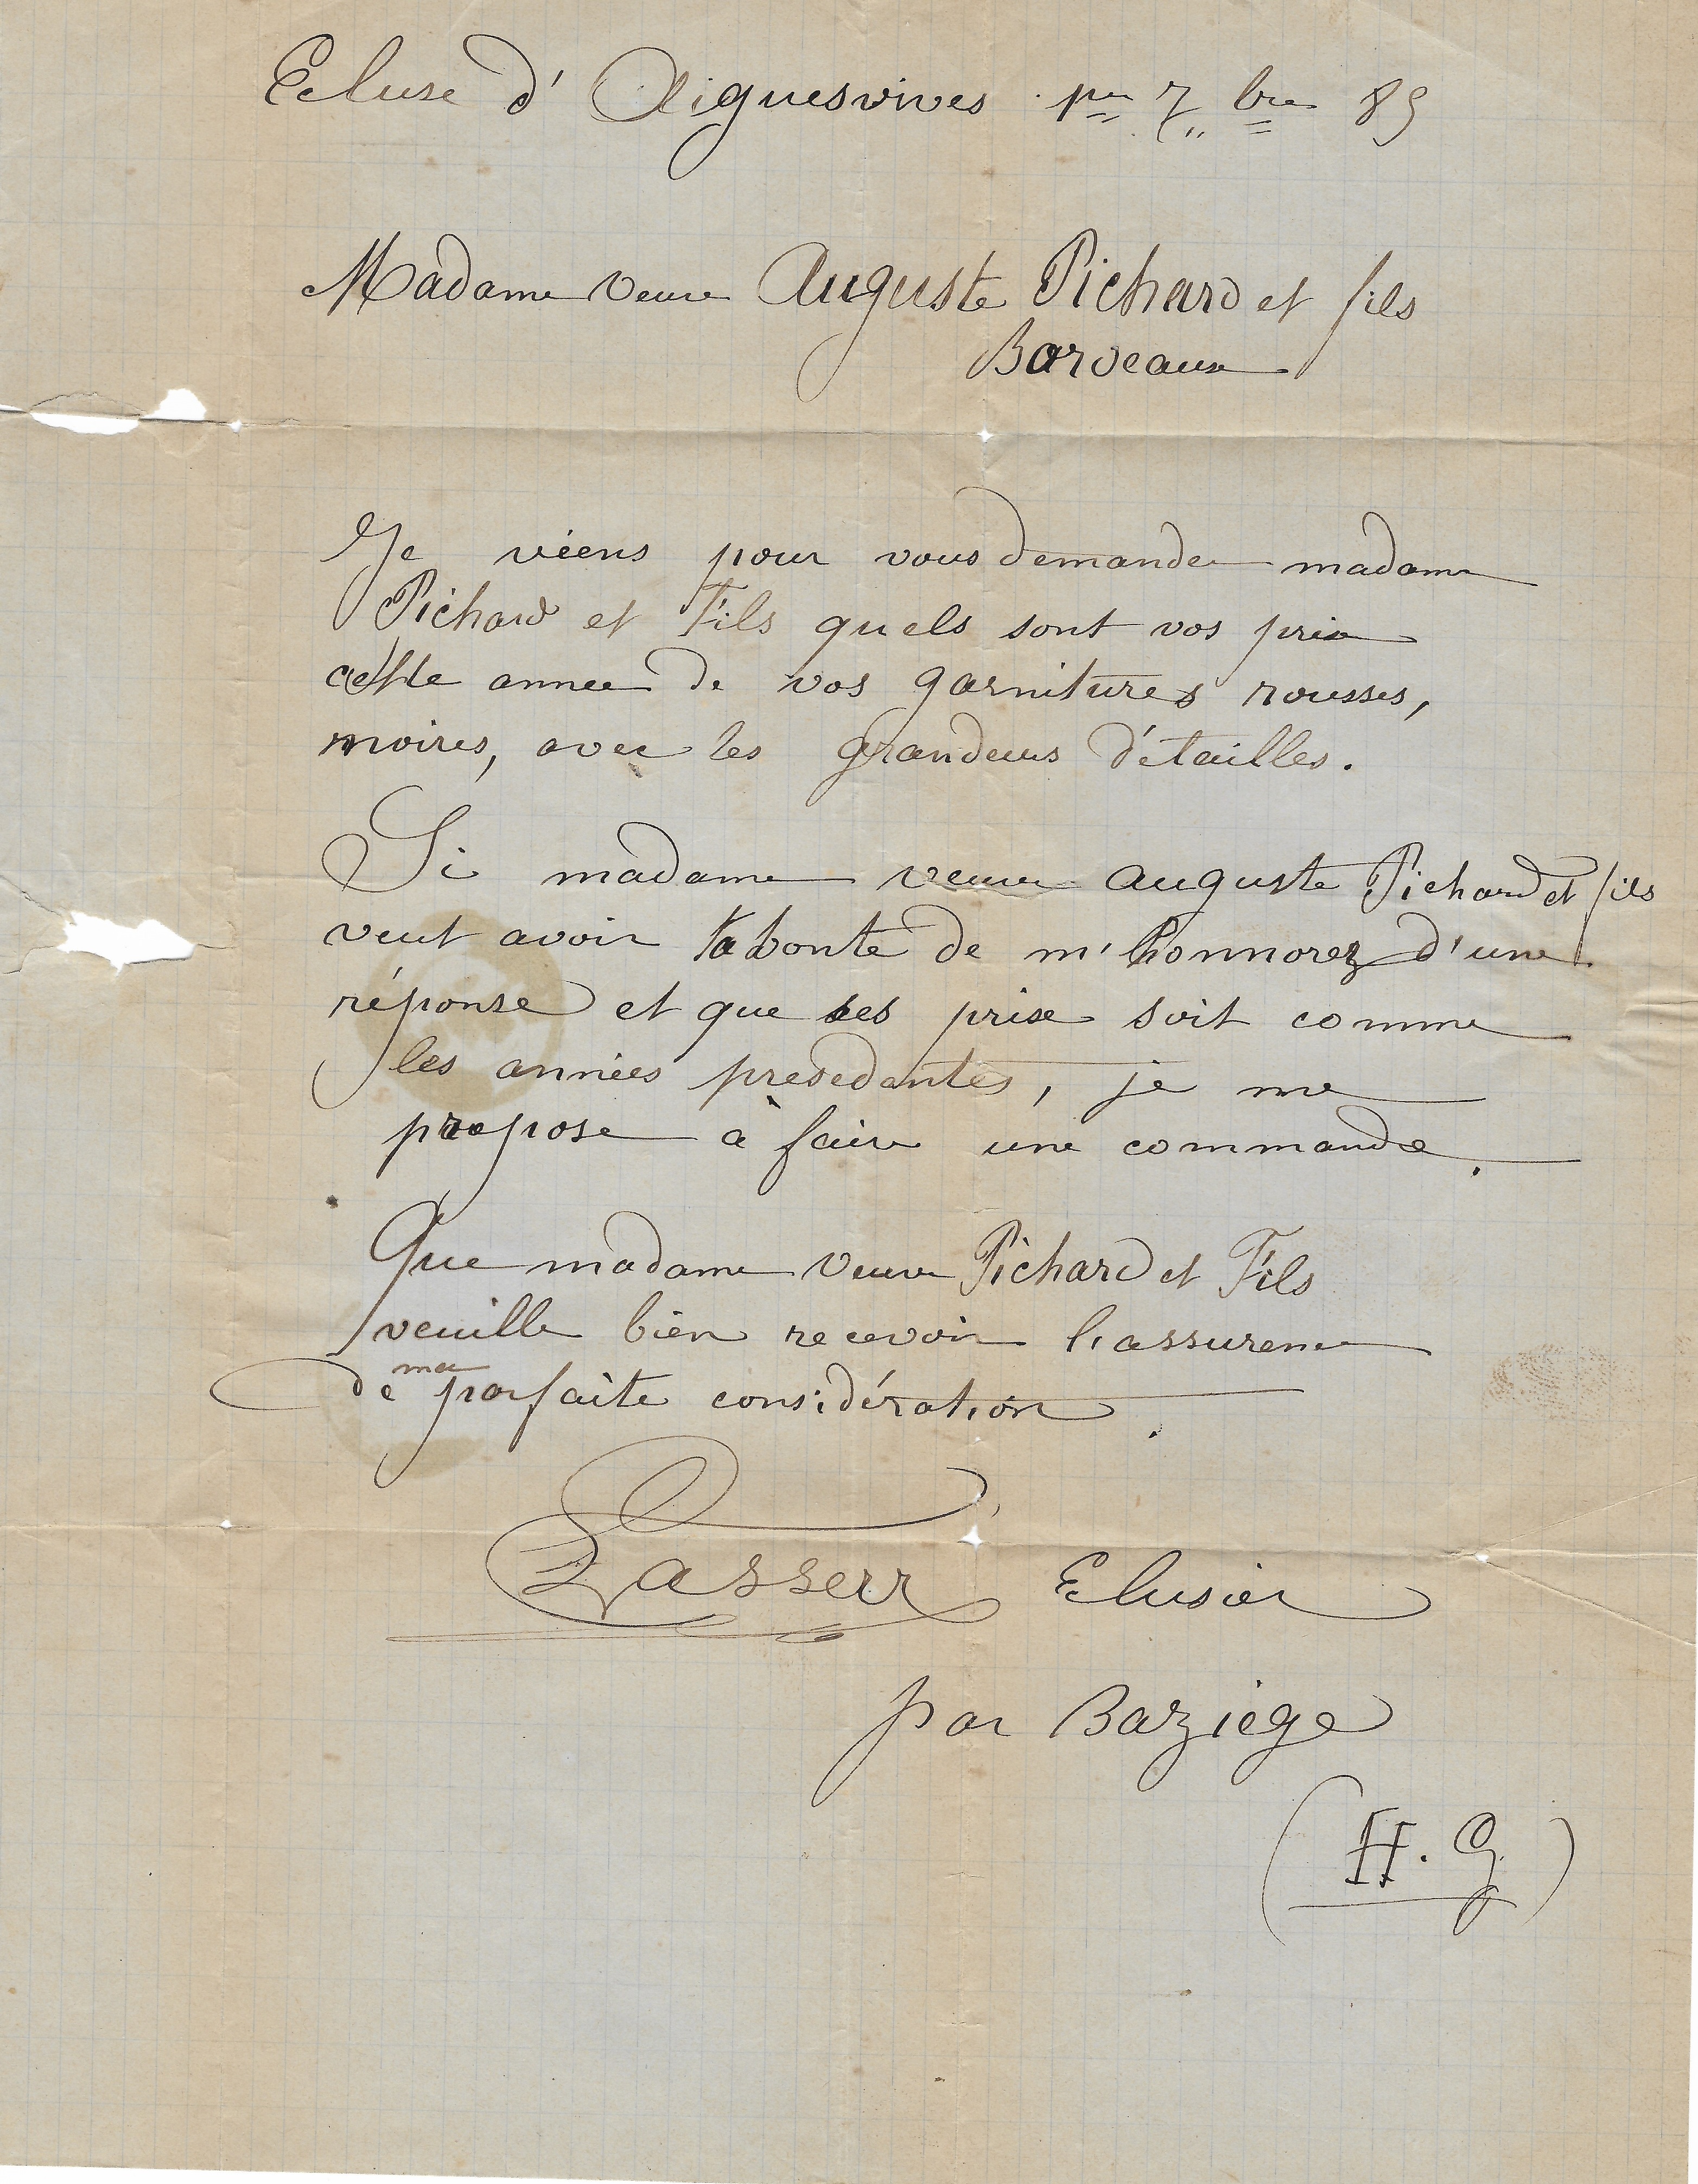 Ecluse d' Aiguesvives 1er 7bre 85
Madame veuve Auguste Pichard et fils
Bordeaux
Je viens pour vous demander madame
Pichard et Fils quels sont vos prix
cette annee de vos garnitures rousses,
noires, avec les grandeurs détailles.
Si madame veuve auguste Pichard et fils
veut avoir la bonte de m'honnorez d'une
réponse et que ses prix soit comme
les années presedantes, je me
propose à faire une commande.
Que madame veuve Pichard et Fils
veuille bien recevoir l'assurence
de ma parfaite considération.
Lasserre Elusier
par Baziege
(H. G)